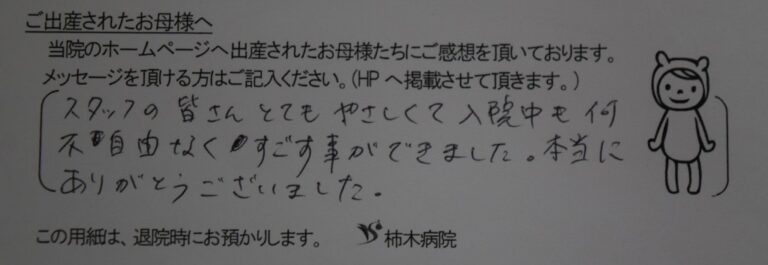 ご出産されたお母様へ
当院のホームページへ出産されたお母様たちにご感想を頂いております。
メッセージを頂ける方はご記入ください。(HPへ掲載させて頂きます。)
スタッフの皆さんとてもやさしくて入院中も何
不自由なくすごす事ができました。本当に
ありがとうございました。
この用紙は、退院時にお預かりします。 柿木病院